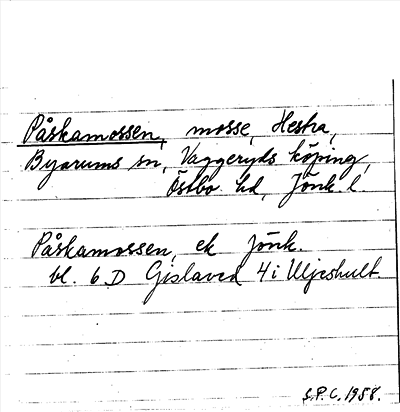 Påskamossen, mosse, Hestra,
Byarums sn, Vaggeryds köping,
Östbo hd, Jönk. l.
Påskamossen, ek Jönk.
bl. 6 D Gislaved 4 i Uljeshult.
S.P.C. 1958.